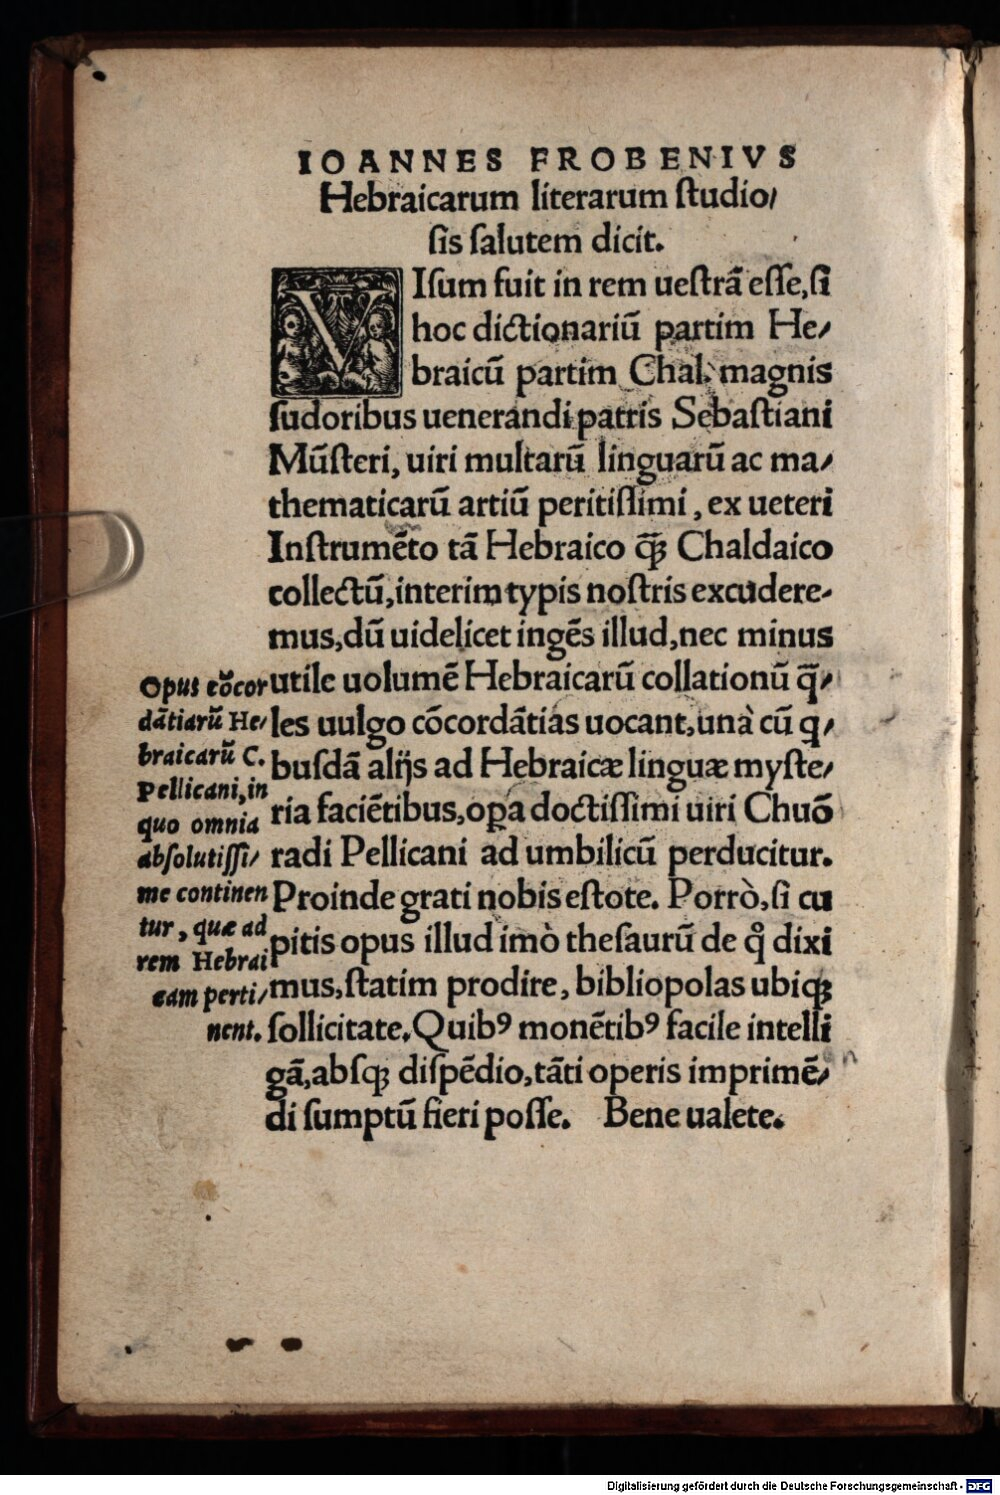 IOANNES FROBENIVS
Hebraicarum literarum ſtudio/
ſis ſalutem dicit.
VIſum fuit in rem ueſtrã eſſe,ſi
hoc dictionariũ partim He/
braicũ partim Chal. magnis
ſudoribus uenerandi patris Sebaſtiani
Mũſteri, uiri multarũ linguarũ ac ma/
thematicarũ artiũ peritiſſimi, ex ueteri
Inſtrumẽto tã Hebraico q̃ꝫ Chaldaico
collectũ,interim typis noſtris excudere-
mus,dũ uidelicet ingẽs illud,nec minus
utile uolumẽ Hebraicarũ collationũ q̃/
les uulgo cõcordãtias uocant,unà cũ q/
buſdã alijs ad Hebraicæ linguæ myſte/
ria faciẽtibus,oꝑa doctiſſimi uiri Chuõ
radi Pellicani ad umbilicũ perducitur.
Proinde grati nobis eſtote. Porrò,ſi cu
pitis opus illud imò theſaurũ de q̊ dixi
mus,ſtatim prodire, bibliopolas ubiqꝫ
ſollicitate.Quibꝰ monẽtibꝰ facile intelli
gã,abſqꝫ diſpẽdio,tãti operis imprimẽ/
di ſumptũ fieri poſſe. Bene ualete.
Opus cõcor
dãtiarũ He/
braicarũ C.
Pellicani,in
quo omnia
abſolutiſſi/
me continen
tur, quæ ad
rem Hebrai
cam perti/
nent.
Digitalisierung gefördert durch die Deutsche Forschungsgemeinschaft - DFG